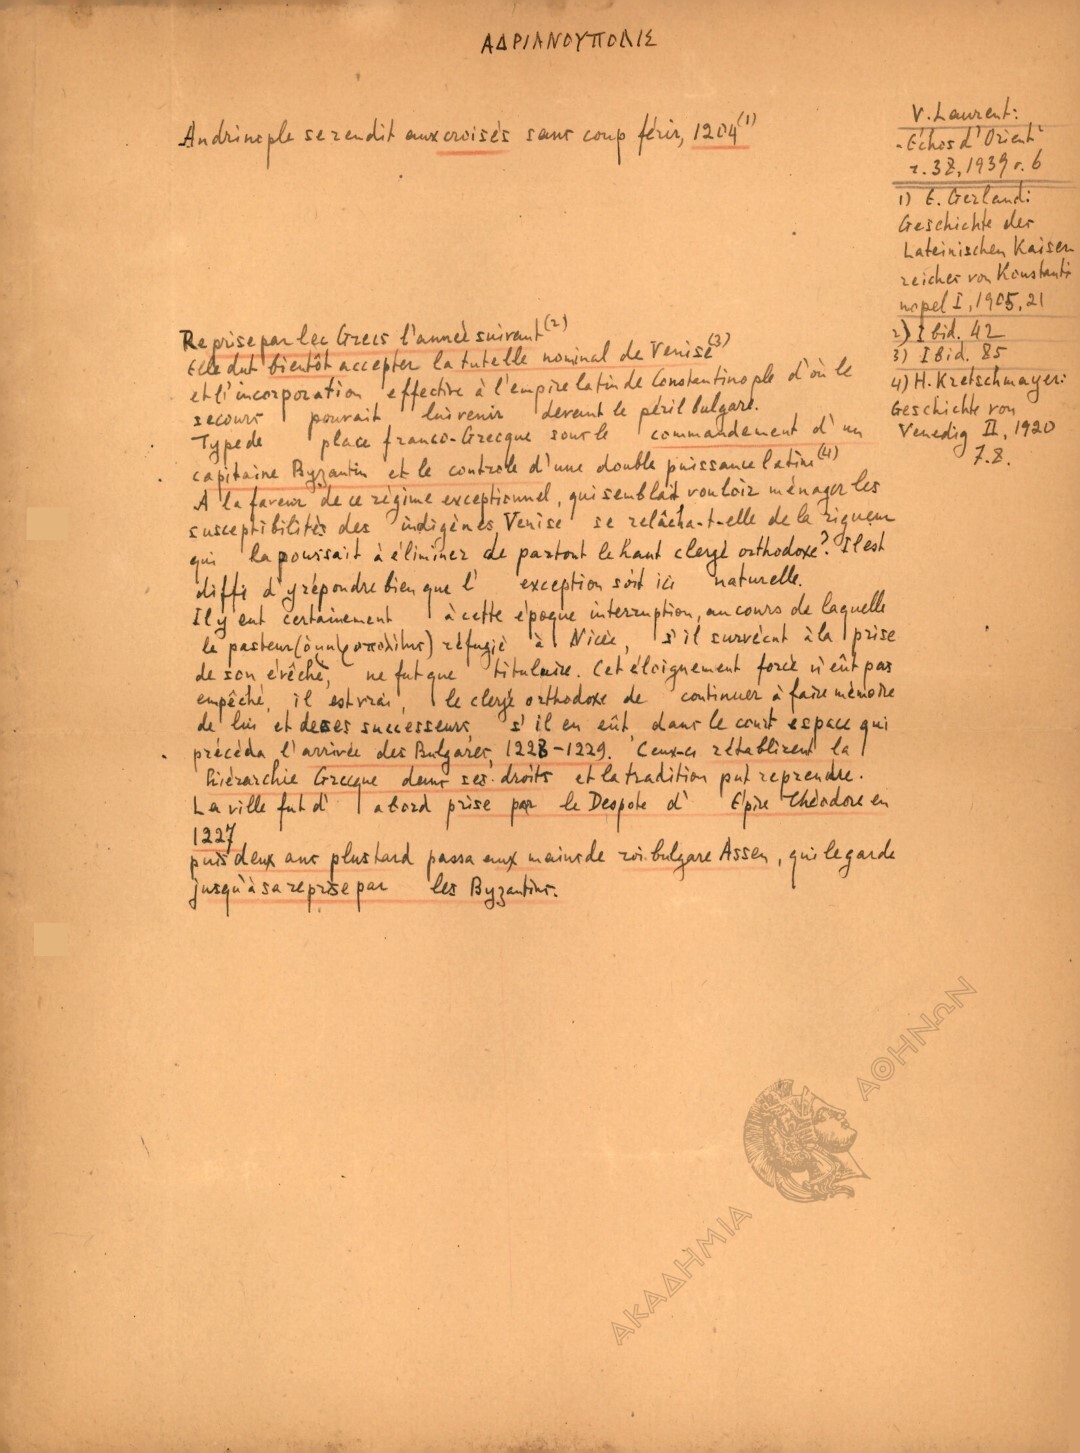 ΑΔΡΙΑΝΟΥΠΟΛΙΣ
Andrinople se rendit aux croisés sans coup férir, 1204(1)
V. Laurent:
"Echos d'Orient"
τ. 38, 1939 σ. 6
1) E. Gerland:
Geschichte des
Lateinischen Kaiser
reiches von Konstanti
nopel I, 1905, 21
2) Ibid. 42
3) Ibid. 85
4) H. Kretschmayer:
Geschichte von
Venedig II, 1920
7.8.
Reprise par les Grecs l'année suivant(2)
Elle dut bientôt accepter la tutelle nominal de Venise(3)
et l'incorporation effective à l'empire latin de Constantinople d'où le
secours pouvait lui venir devant le péril bulgare.
Type de place franco-Grecque sous le commandement d'un
capitaine Byzantin et le controle d'une double puissance latine(4)
A la faveur de ce régime exceptionnel, qui semblait vouloir ménager les
susceptibilités des indigènes Venise se relâcha-t-elle de la rigueur
qui la poussait à éliminer de partout le haut clergé orthodoxe? Il est
diffi d'y répondre bien que l' exception soit ici naturelle.
Il y eut certainement à cette époque interruption, au cours de laquelle
le pasteur réfugié à Nicée, s'il survécut à la prise
de son évêché, ne fut que titulaire. Cet éloignement forcé n'eût pas
empêché, il est vrai, le clergé orthodoxe de continuer à faire mémoire
de lui et de ses successeurs, s'il en eût, dans le court espace qui
précéda l'arrivée des Bulgares, 1228-1229. Ceux-ci rétablirent la
hiérarchie Grecque dans ses droits et la tradition put reprendre.
La ville fut d' abord prise par le Despote d' Epire Théodore en
1227
puis deux ans plus tard passa aux mains de roi bulgare Assen, qui le garde
jusqu'à sa reprise par les Byzantins.
ΑΚΑΔΗΜΙΑ ΑΘΗΝΩΝ